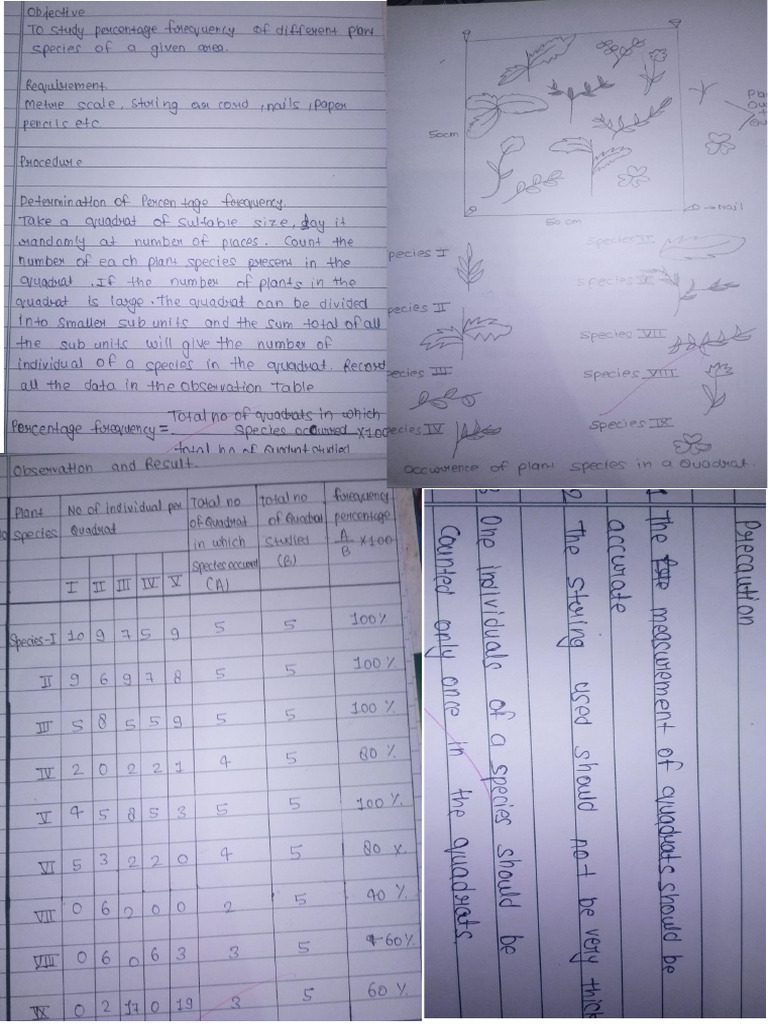 Objective
To study percentage frequency of different plant
species of a given area.
Requirement
Metre scale, string or cord, nails, paper
pencils etc
Procedure
Determination of Percentage frequency.
Take a quadrat of suitable size, lay it
randomly at number of places. Count the
number of each plant species present in the
quadrat. If the number of plants in the
quadrat is large. The quadrat can be divided
into smaller sub units and the sum total of all
the sub units will give the number of
individual of a species in the quadrat. Record
all the data in the observation Table
Percentage frequency = Total no of quadrats in which
species occurred x100
total no of Quadrat studied
50cm
50 cm
→ Nail
Species I
Species II
Species III
Species IV
Species VII
Species VIII
Species IX
occurrence of plant species in a Quadrat.
Observation and Result.
Plant species
No of individual per Quadrat
Total no of Quadrat in which species occured (A)
total no of Quadrat studies (B)
frequency percentage A/B x100
I II III IV V
Species-I 10 9 7 5 9 5 5 100%
II 9 6 9 7 8 5 5 100%
III 5 8 5 5 9 5 5 100%
IV 2 0 2 2 1 4 5 80%
V 4 5 8 5 3 5 5 100%
VI 5 3 2 2 0 4 5 80%
VII 0 6 2 0 0 2 5 40%
VIII 0 6 0 6 3 3 5 60%
IX 0 2 17 0 19 3 5 60%
Precaution
1 The measurement of quadrats should be
accurate
2 The string used should not be very thick
3 One individuals of a species should be
counted only once in the quadrats.